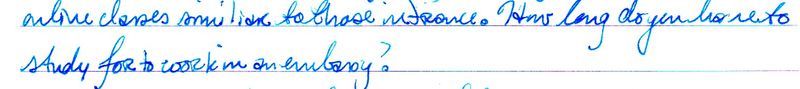 online classes similiar to those in France. How long do you have to
study for to work in an embassy?